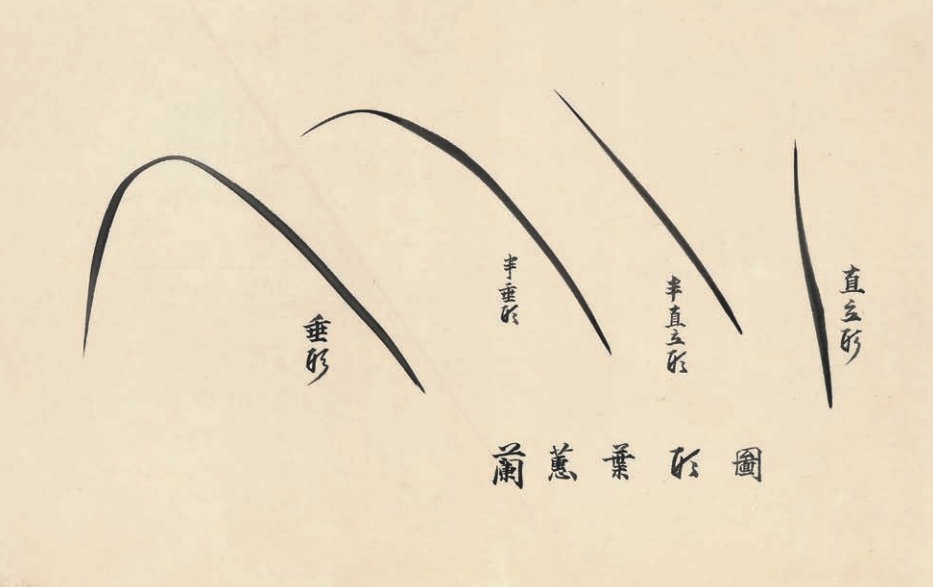 直立形
半直立形
半垂形
垂形
蘭蕙葉形圖